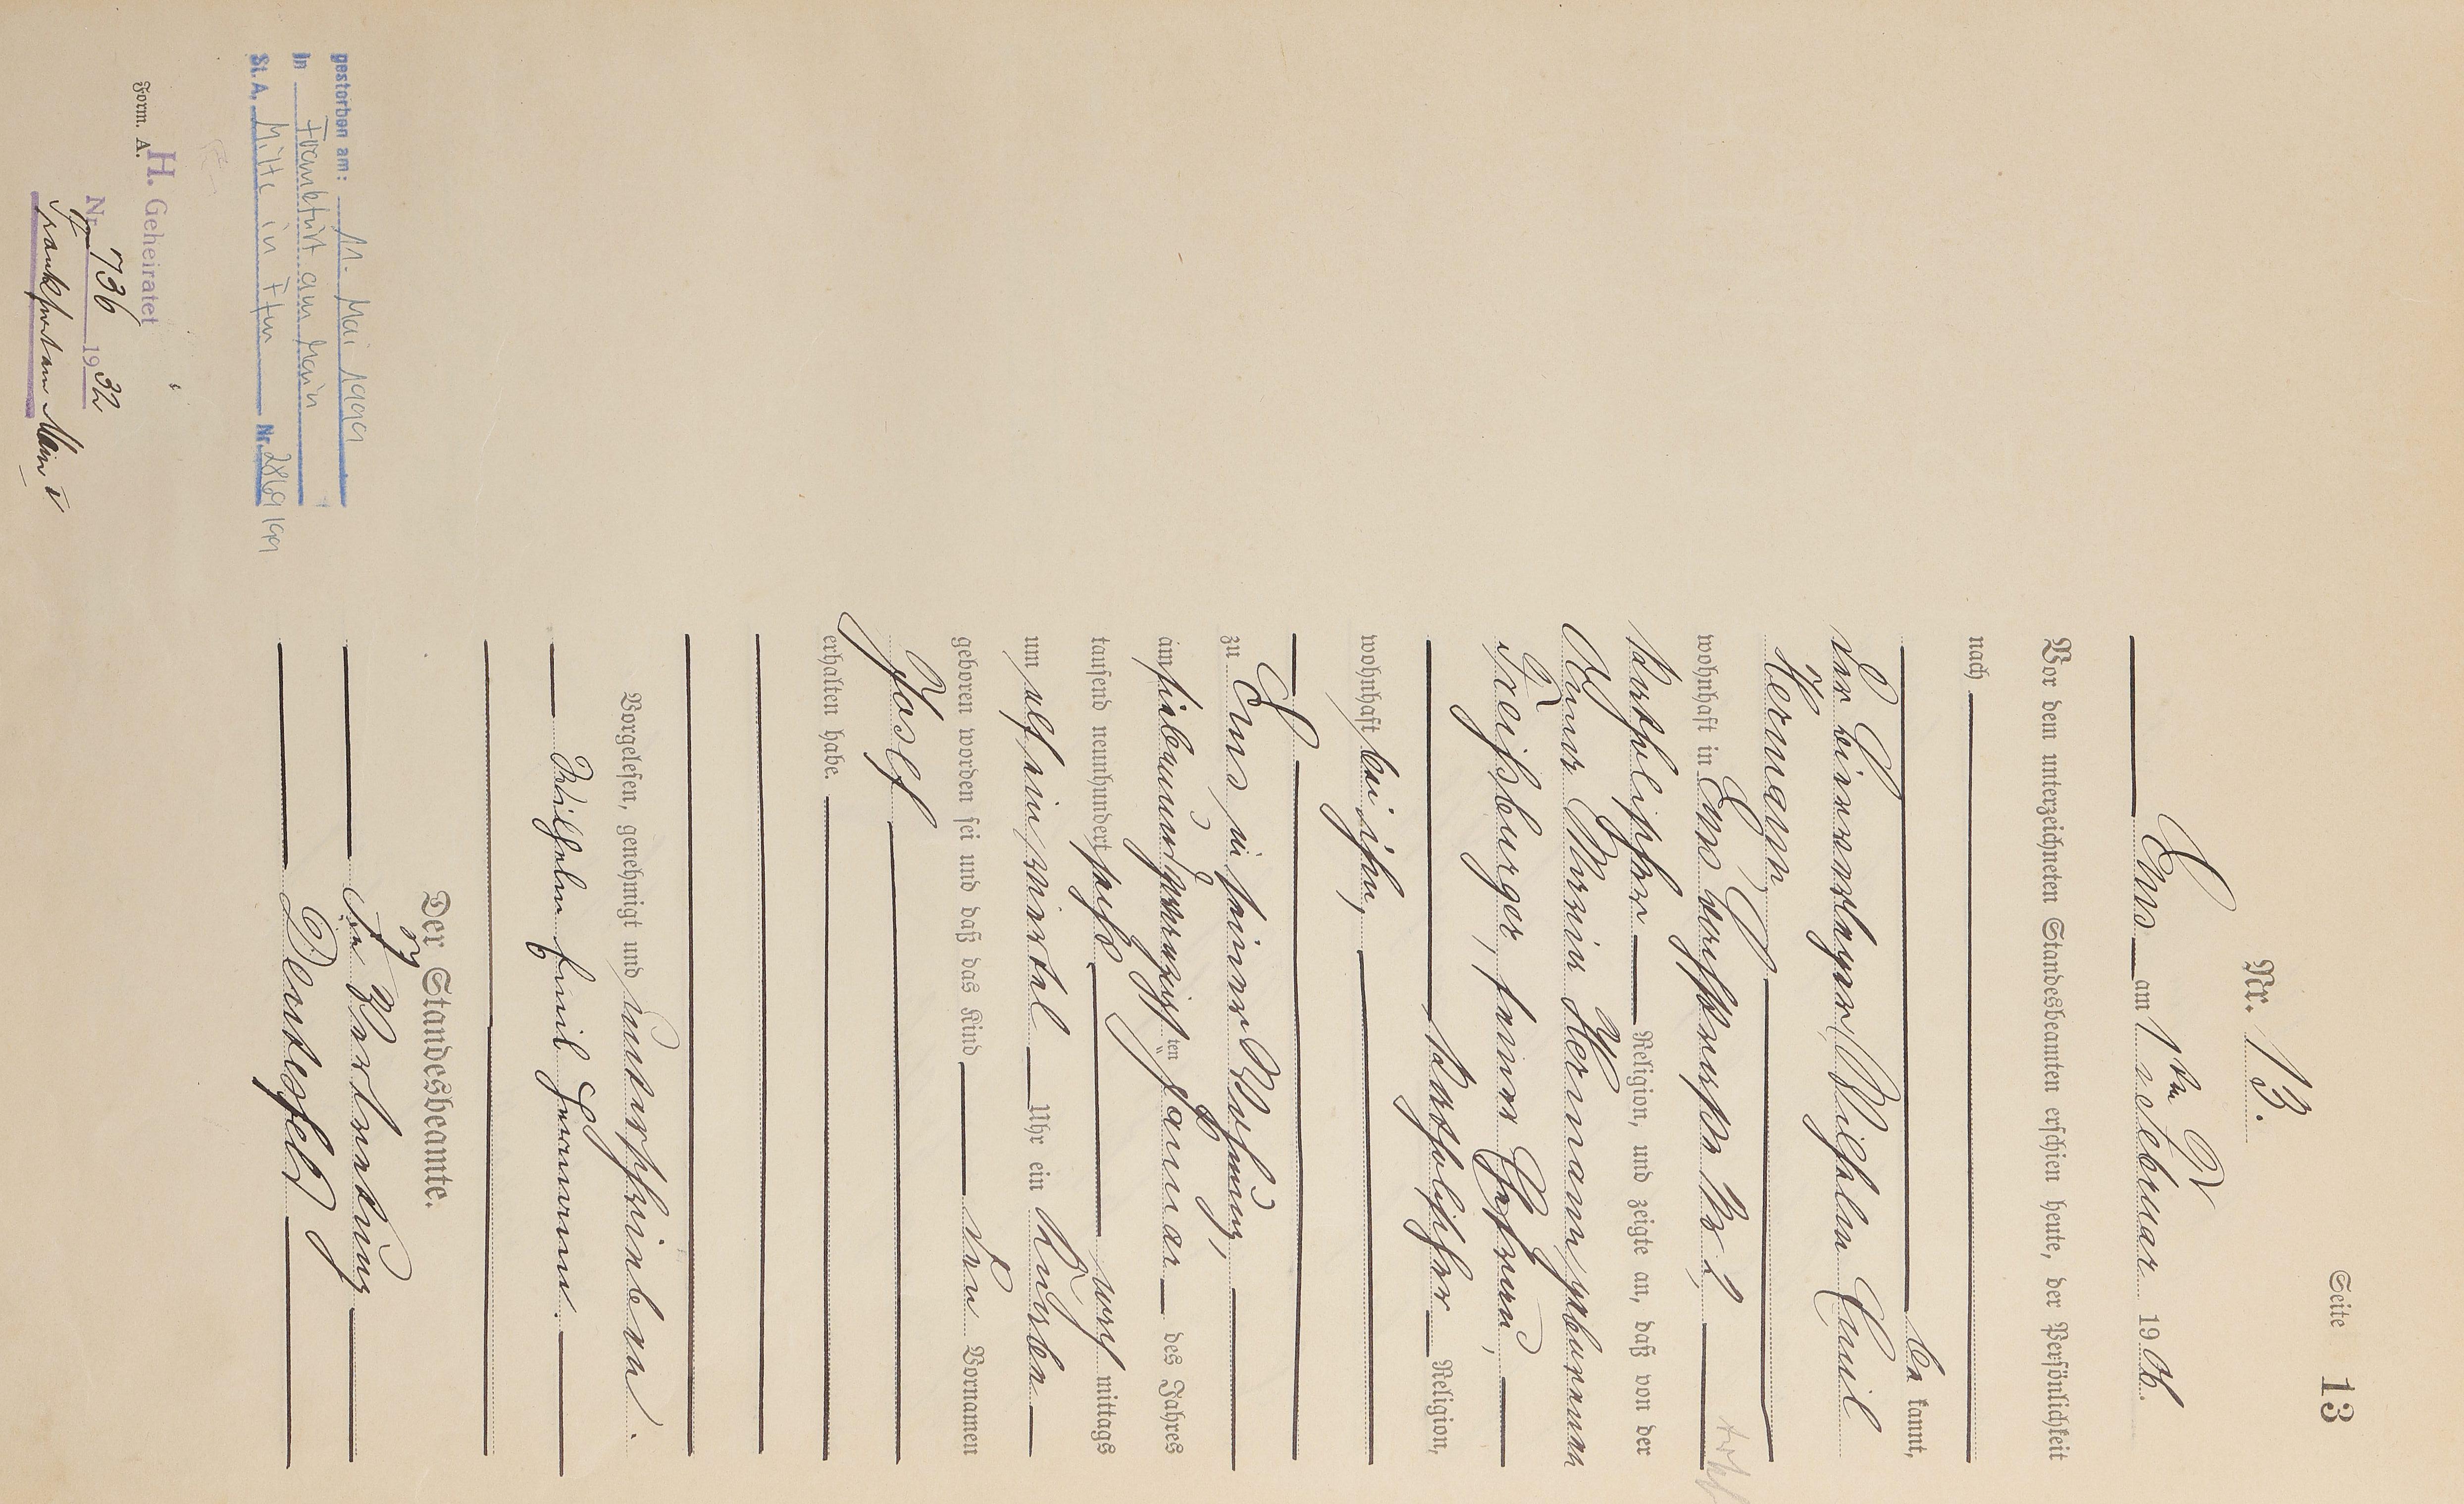 Seite 13
Nr. 13.
Ems am 1ten Februar 1906.
Vor dem unterzeichneten Standesbeamten erschien heute, der Persönlichkeit
nach
be kannt,
der Eisenarbeiter Wilhelm Emil
Hermann,
wohnhaft in Ems,
katholischer Religion, und zeigte an, daß von der
Anna Maria Hermann geborenen
Weißburger, seiner Ehefrau,
katholischer Religion,
wohnhaft bei ihm,
zu Ems in seiner Wohnung,
am siebenundzwanzigsten Januar des Jahres
tausend neunhundert sechs vor mittags
um elf ein viertel Uhr ein Knabe
geboren worden sei und daß das Kind den Vornamen
Josef
erhalten habe.
Vorgelesen, genehmigt und unterschrieben.
Wilhelm Emil Hermann.
Der Standesbeamte.
In Vertretung
gestorben am: 11. Mai 1999
in Frankfurt am Main
St. A. Mitte in Ffm Nr. 2869/99
Form. A.
H. Geheiratet
Nr. 736 1932
Frankfurt am Main V